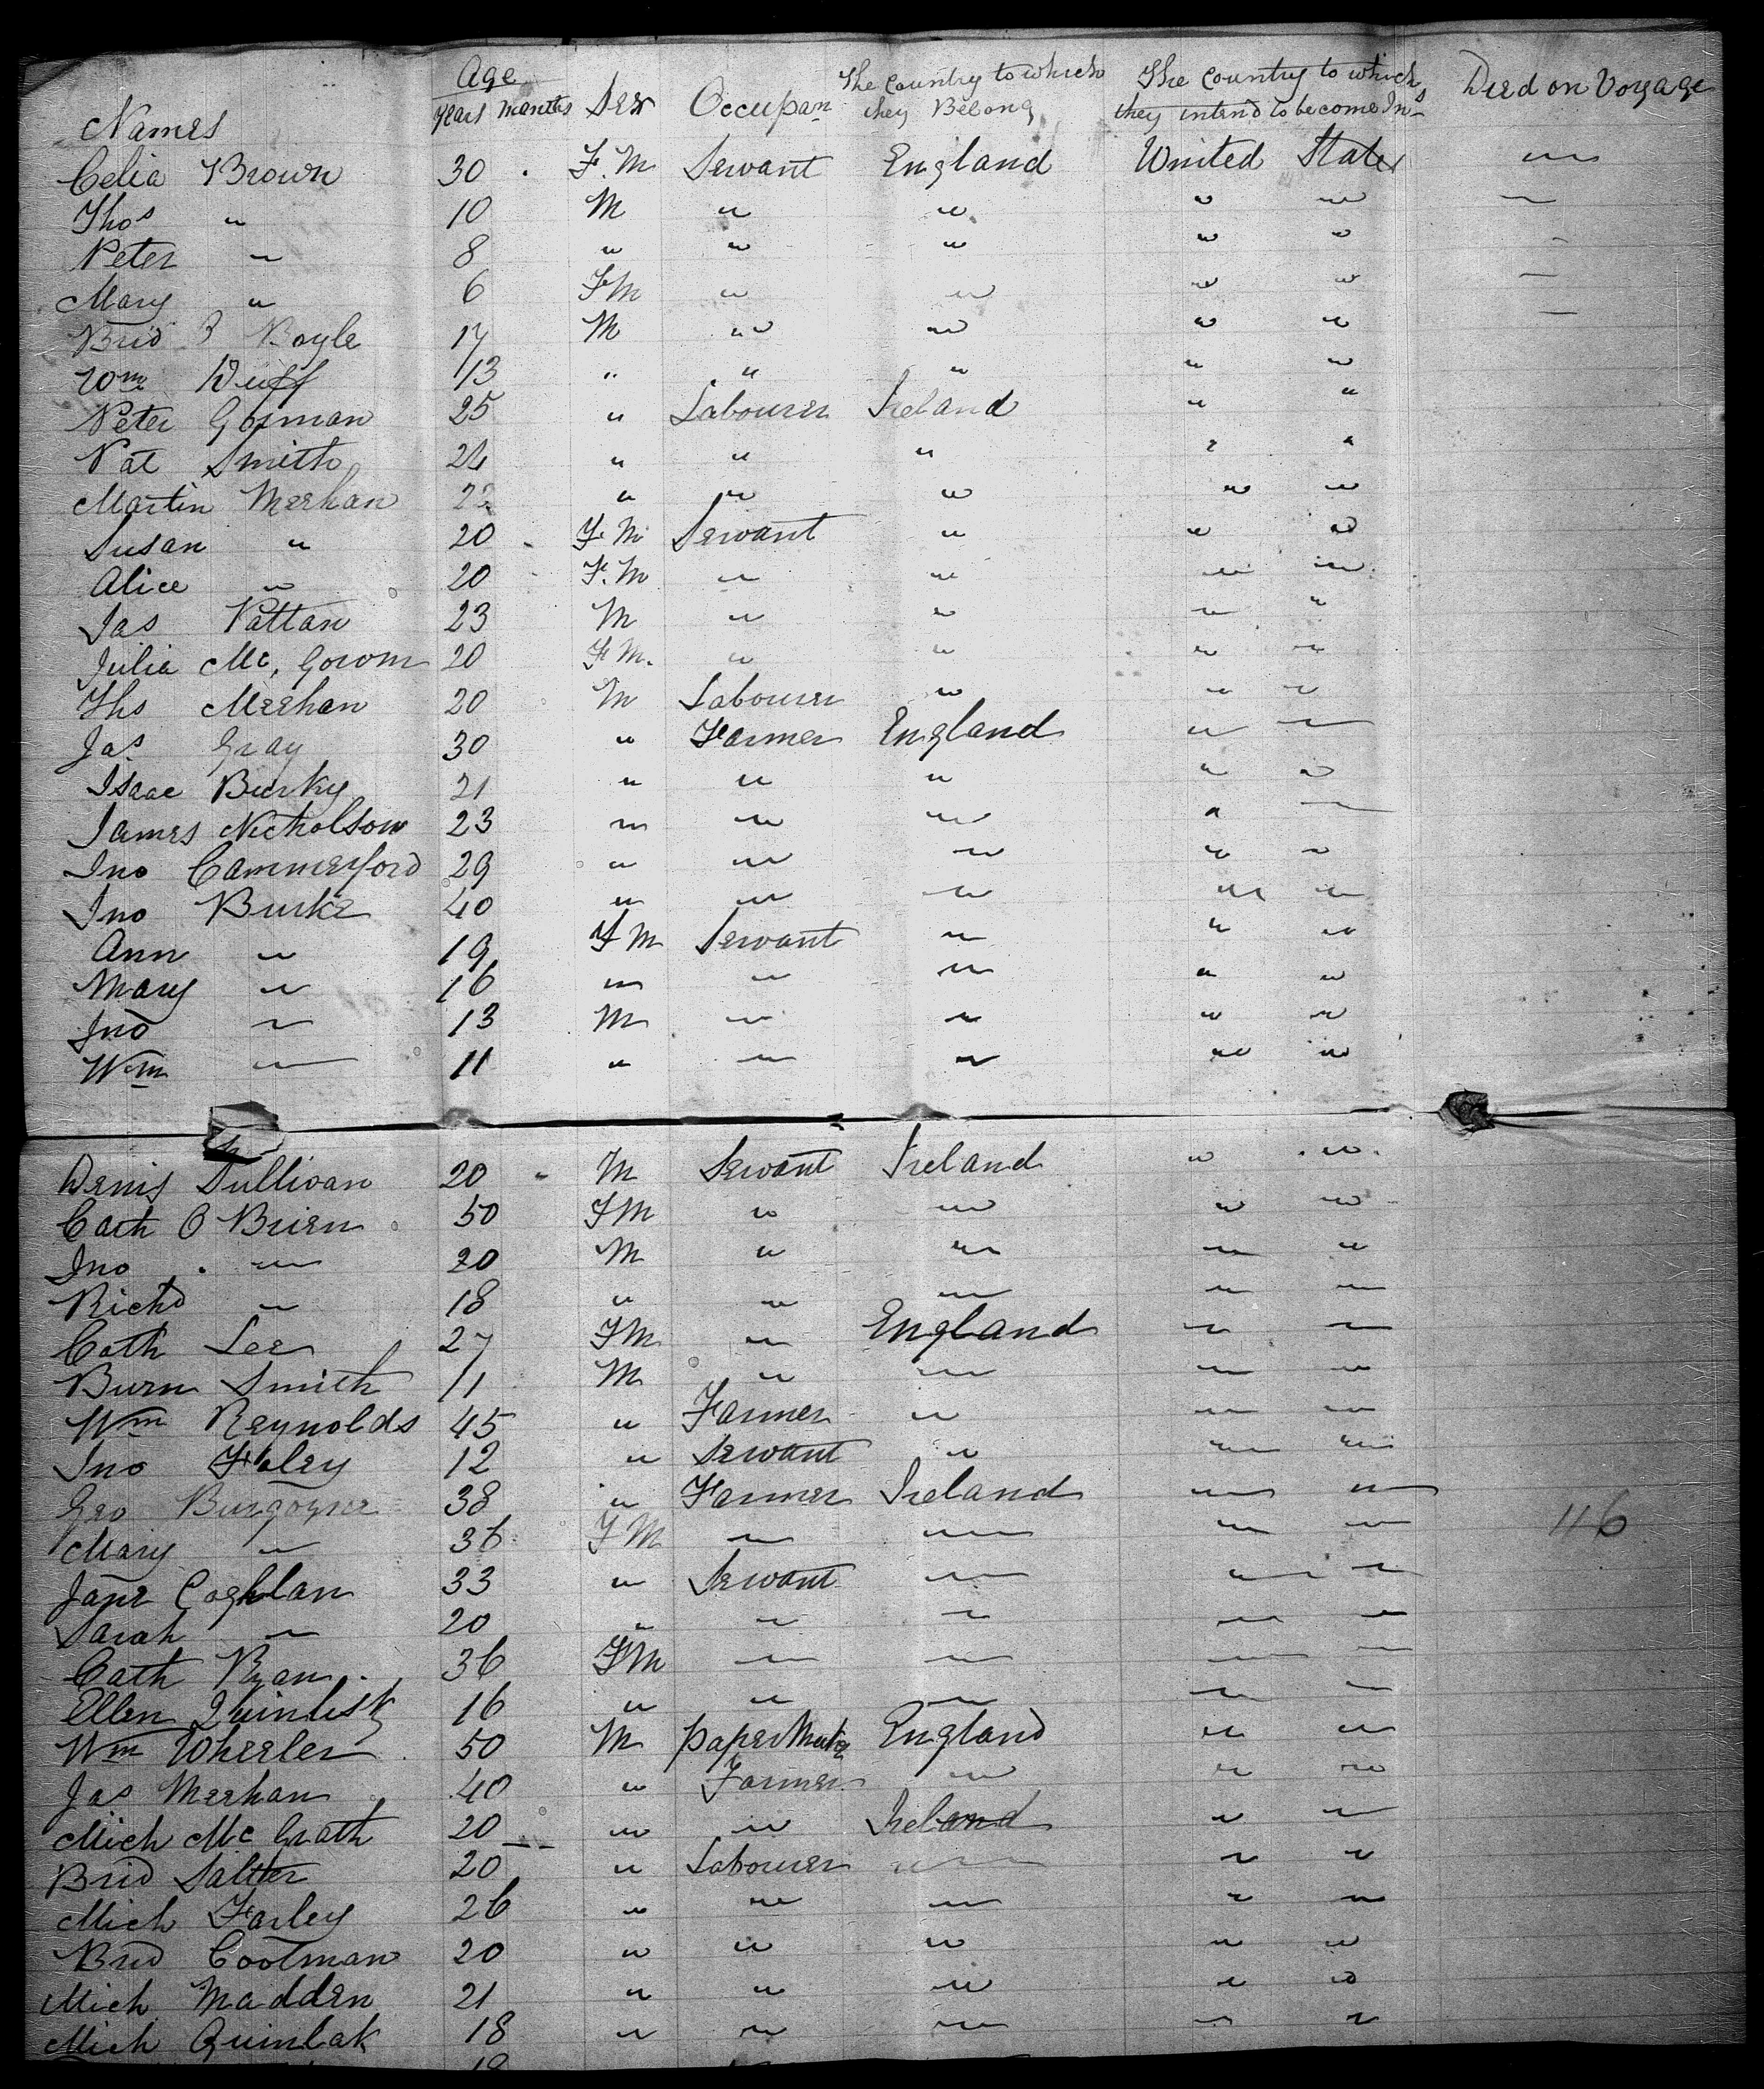 Names Age Years Months Sex Occupan The Country to which they Belong The Country to which they intend to become Ins Died on Voyage
Celia Brown 30 . F.M Servant England United States "
Thos " 10 M " " " " "
Peter " 8 " " " " " "
Mary " 6 FM " " " " "
Brid Boyle 17 M " " " " "
Wm Duff 13 " " " " "
Peter Gorman 25 " Labourer Ireland " "
Pat Smith 24 " " " " "
Martin Meehan 22 " " " " "
Susan " 20 F.M Servant " " "
Alice " 20 F.M " " " "
Jas Pattan 23 M " " " "
Julia Mc, Gowm 20 FM. " " " "
Ths Meehan 20 M Labourer " " "
Jas Gray 30 " Farmer England " "
Isaac Burky 21 " " " " "
James Nicholson 23 " " " " "
Jno Cammerford 29 " " " " "
Jno Burke 40 " " " " "
Ann " 19 FM Servant " " "
Mary " 16 " " " " "
Jno " 13 M " " " "
Wm " 11 " " " " "
Denis Sullivan 20 " M Servant Ireland " "
Cath O Brien 50 FM " " " "
Jno " 20 M " " " "
Richd " 18 " " " " "
Cath Lee 27 FM " England " "
Burn Smith 11 M " " " "
Wm Reynolds 45 " Farmer " " "
Jno Foley 12 " Servant " " "
Geo Burgoyne 38 " Farmer Ireland " "
Mary " 36 FM " " " "
116
Jane Coghlan 33 " Servant " " "
Sarah " 20 " " " " "
Cath Ryan 36 FM " " " "
Ellen 16 " " " " "
Wm Wheeler 50 M paper England " "
Jas Meehan 40 " Farmer " " "
Mich Mc Grath 20 " " Ireland " "
Brid Salter 20 " Labourer " " "
Mich Farley 26 " " " " "
Brid Cootman 20 " " " " "
Mich Madden 21 " " " " "
Mich Quinlak 18 " " " " "